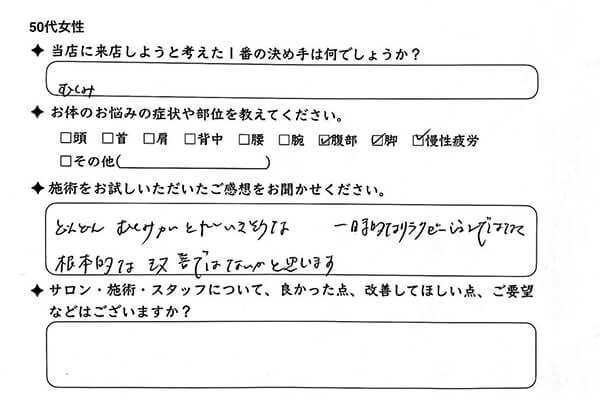 50代女性
✦ 当店に来店しようと考えた1番の決め手は何でしょうか？
むくみ
✦ お体のお悩みの症状や部位を教えてください。
□頭 □首 □肩 □背中 □腰 □腕 ☑腹部 ☑脚 ☑慢性疲労
□その他( )
✦ 施術をお試しいただいたご感想をお聞かせください。
どんどん むくみが とれていき 一時的なリラクゼーションではなく
根本的な 改善ではないかと思います
✦ サロン・施術・スタッフについて、良かった点、改善してほしい点、ご要望
などはございますか？